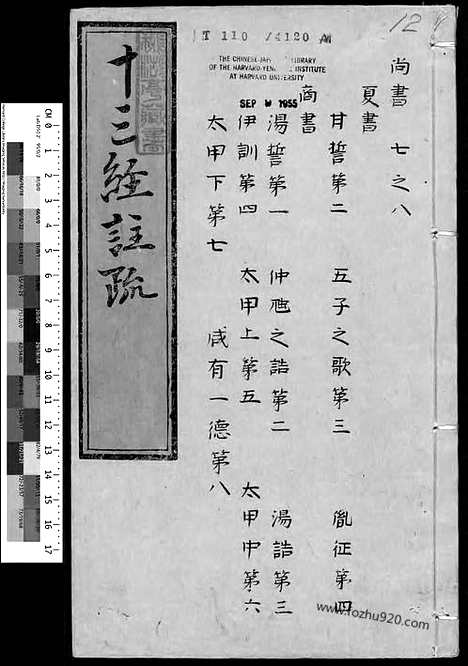 12
T 110 /4120
THE CHINESE-JAPANESE LIBRARY
OF THE HARVARD-YENCHING INSTITUTE
AT HARVARD UNIVERSITY
SEP 9 1955
尚書　七之八
夏書
甘誓第二　五子之歌第三　胤征第四
商書
湯誓第一　仲虺之誥第二　湯誥第三
伊訓第四　太甲上第五　太甲中第六
太甲下第七　咸有一德第八
十三經註疏
CM 0 1 2 3 4 5 6 7 8 9 10 11 12 13 14 15 16 17
www.fozhu920.com